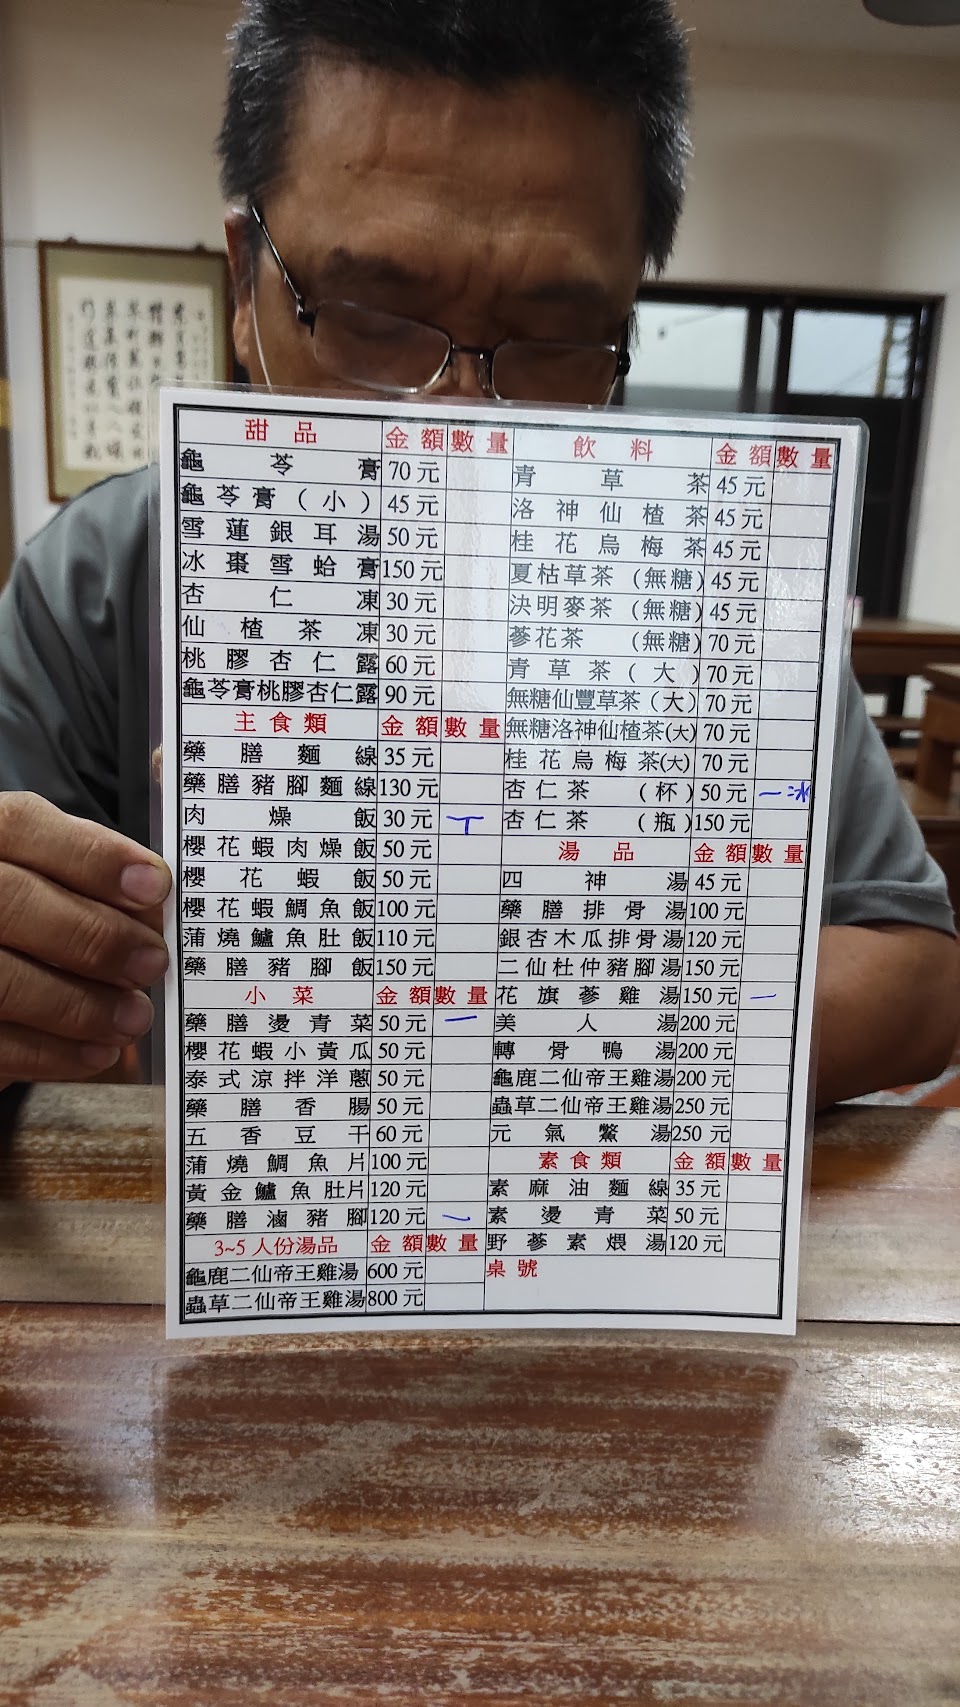 甜品 金額 數量
龜苓膏 70元
龜苓膏（小） 45元
雪蓮銀耳湯 50元
冰棗雪蛤膏 150元
杏仁凍 30元
仙楂茶凍 30元
桃膠杏仁露 60元
龜苓膏桃膠杏仁露 90元
主食類 金額 數量
藥膳麵線 35元
藥膳豬腳麵線 130元
肉燥飯 30元 丅
櫻花蝦肉燥飯 50元
櫻花蝦飯 50元
櫻花蝦鯛魚飯 100元
蒲燒鱸魚肚飯 110元
藥膳豬腳飯 150元
小菜 金額 數量
藥膳燙青菜 50元 一
櫻花蝦小黃瓜 50元
泰式涼拌洋蔥 50元
藥膳香腸 50元
五香豆干 60元
蒲燒鯛魚片 100元
黃金鱸魚肚片 120元
藥膳滷豬腳 120元 一
3~5人份湯品 金額 數量
龜鹿二仙帝王雞湯 600元
蟲草二仙帝王雞湯 800元
飲料 金額 數量
青草茶 45元
洛神仙楂茶 45元
桂花烏梅茶 45元
夏枯草茶（無糖） 45元
決明麥茶（無糖） 45元
蔘花茶（無糖） 70元
青草茶（大） 70元
無糖仙豐草茶（大） 70元
無糖洛神仙楂茶(大) 70元
桂花烏梅茶(大) 70元
杏仁茶（杯） 50元 一冰
杏仁茶（瓶） 150元
湯品 金額 數量
四神湯 45元
藥膳排骨湯 100元
銀杏木瓜排骨湯 120元
二仙杜仲豬腳湯 150元
花旗蔘雞湯 150元 一
美人湯 200元
轉骨鴨湯 200元
龜鹿二仙帝王雞湯 200元
蟲草二仙帝王雞湯 250元
元氣鱉湯 250元
素食類 金額 數量
素麻油麵線 35元
素燙青菜 50元
野蔘素煨湯 120元
桌號